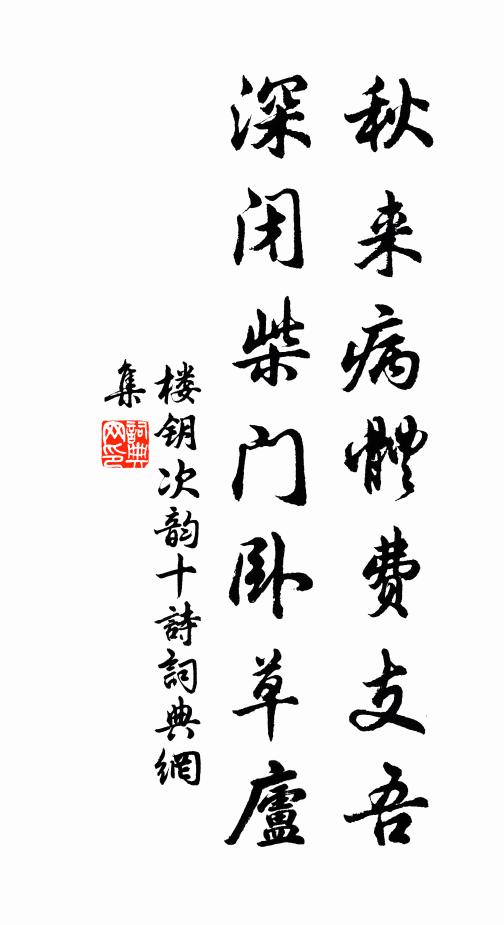 秋来病體费支吾
深闭柴门卧草廬
楼钥次韵十詩詞典網
集
詞典
网印